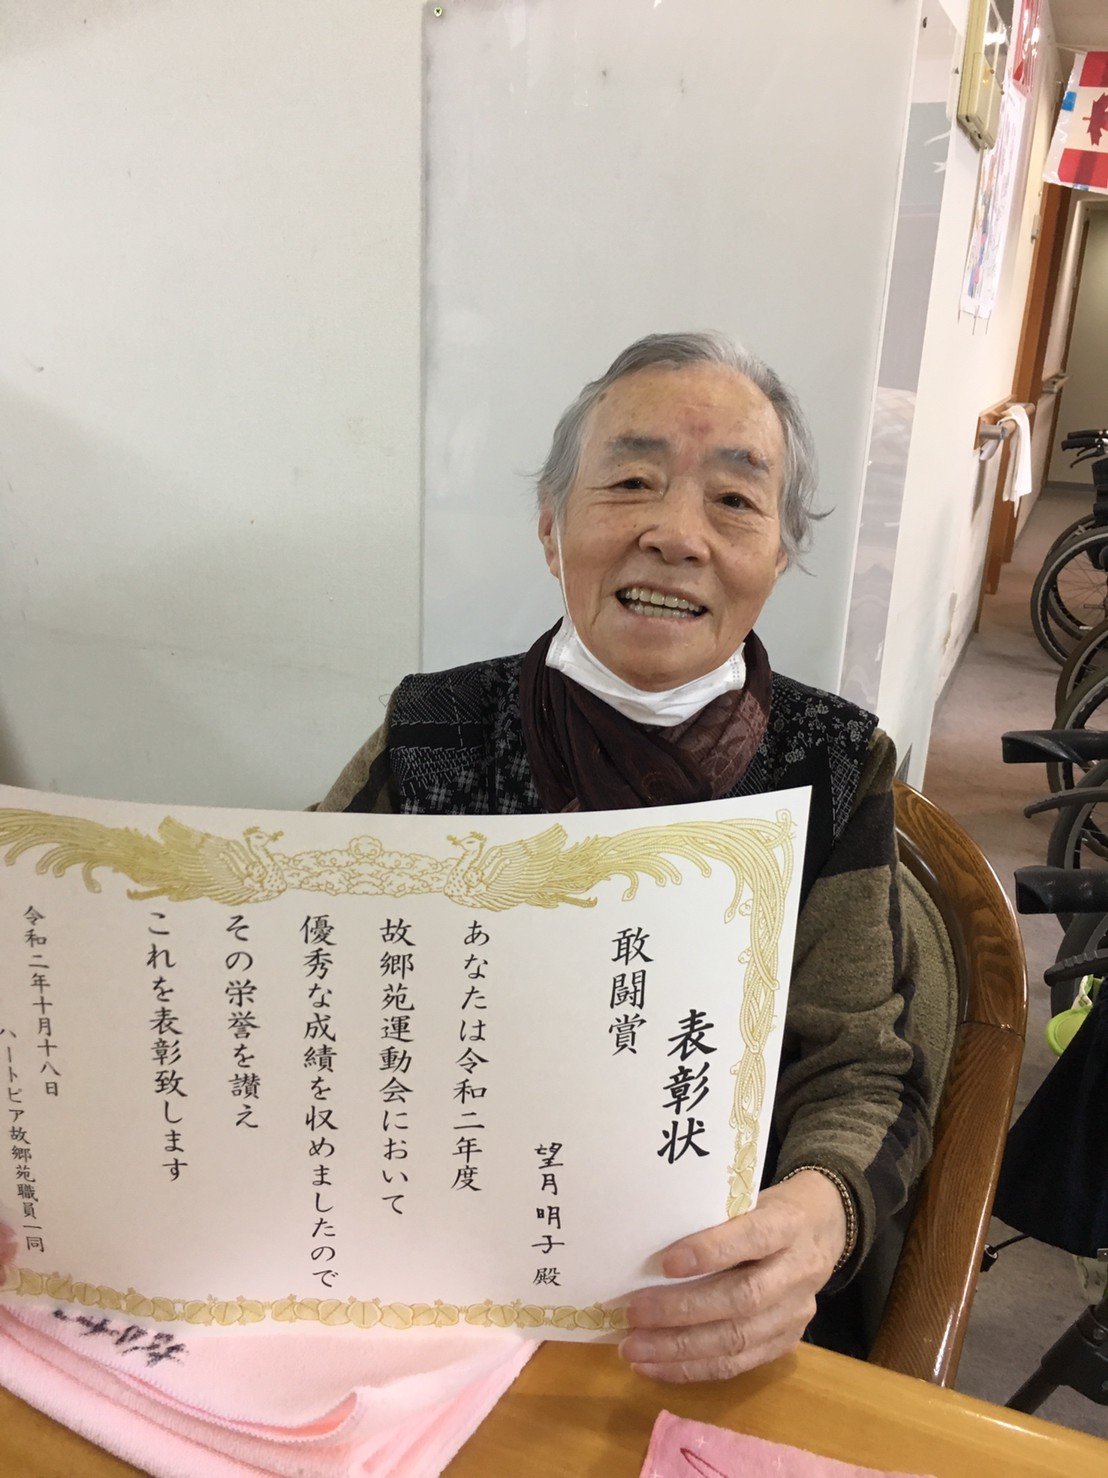 表彰状
敢闘賞
望月明子殿
あなたは令和二年度
故郷苑運動会において
優秀な成績を収めましたので
その栄誉を讃え
これを表彰致します
令和二年十月十八日
ハートピア故郷苑職員一同